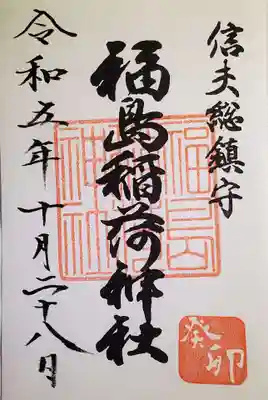 信夫総鎮守
福島稲荷神社
令和五年十月二十八日
癸卯